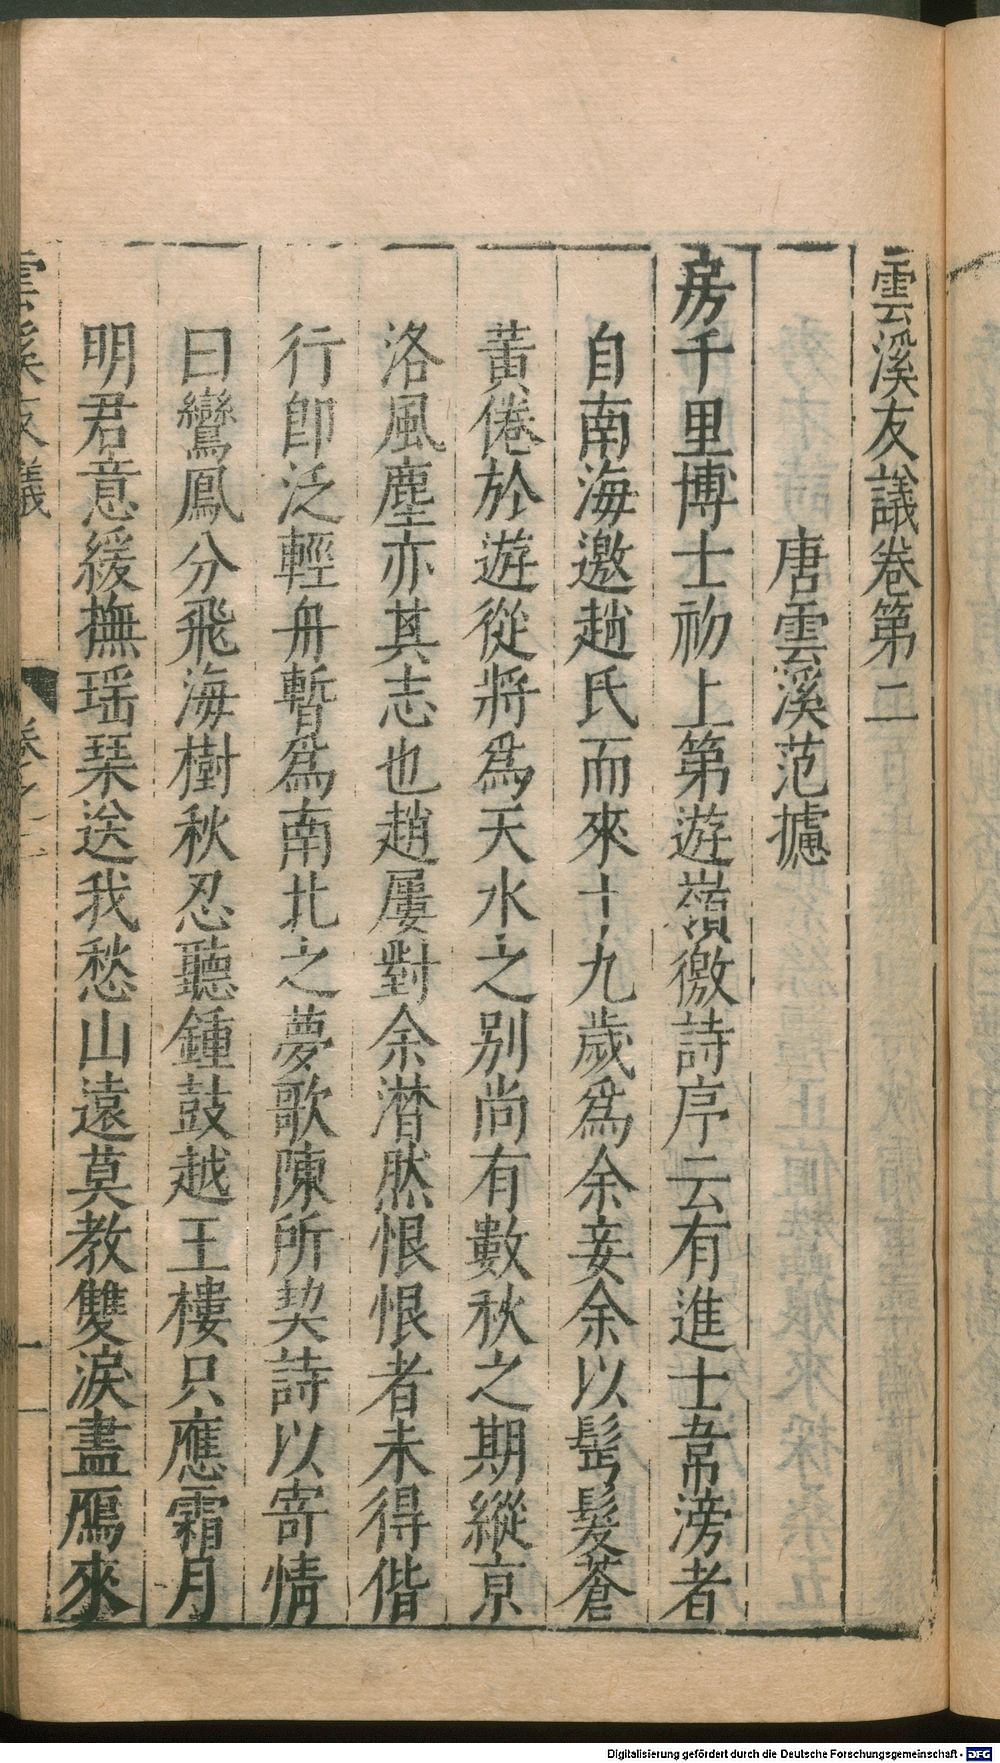 雲溪友議卷第二
唐雲溪范攄
房千里博士初上第遊嶺徼詩序云有進士韋滂者
自南海邀趙氏而來十九歲爲余妾余以髩髮蒼
黃倦於遊從將爲天水之别尚有數秋之期縱京
洛風塵亦其志也趙屢對余潸然恨恨者未得偕
行卽泛輕舟暫爲南北之夢歌陳所契詩以寄情
曰鸞鳳分飛海樹秋忍聽鍾鼓越王樓只應霜月
明君意緩撫瑶琹送我愁山遠莫教雙淚盡鴈來
雲溪友議
卷之二
一
Digitalisierung gefördert durch die Deutsche Forschungsgemeinschaft - DFG